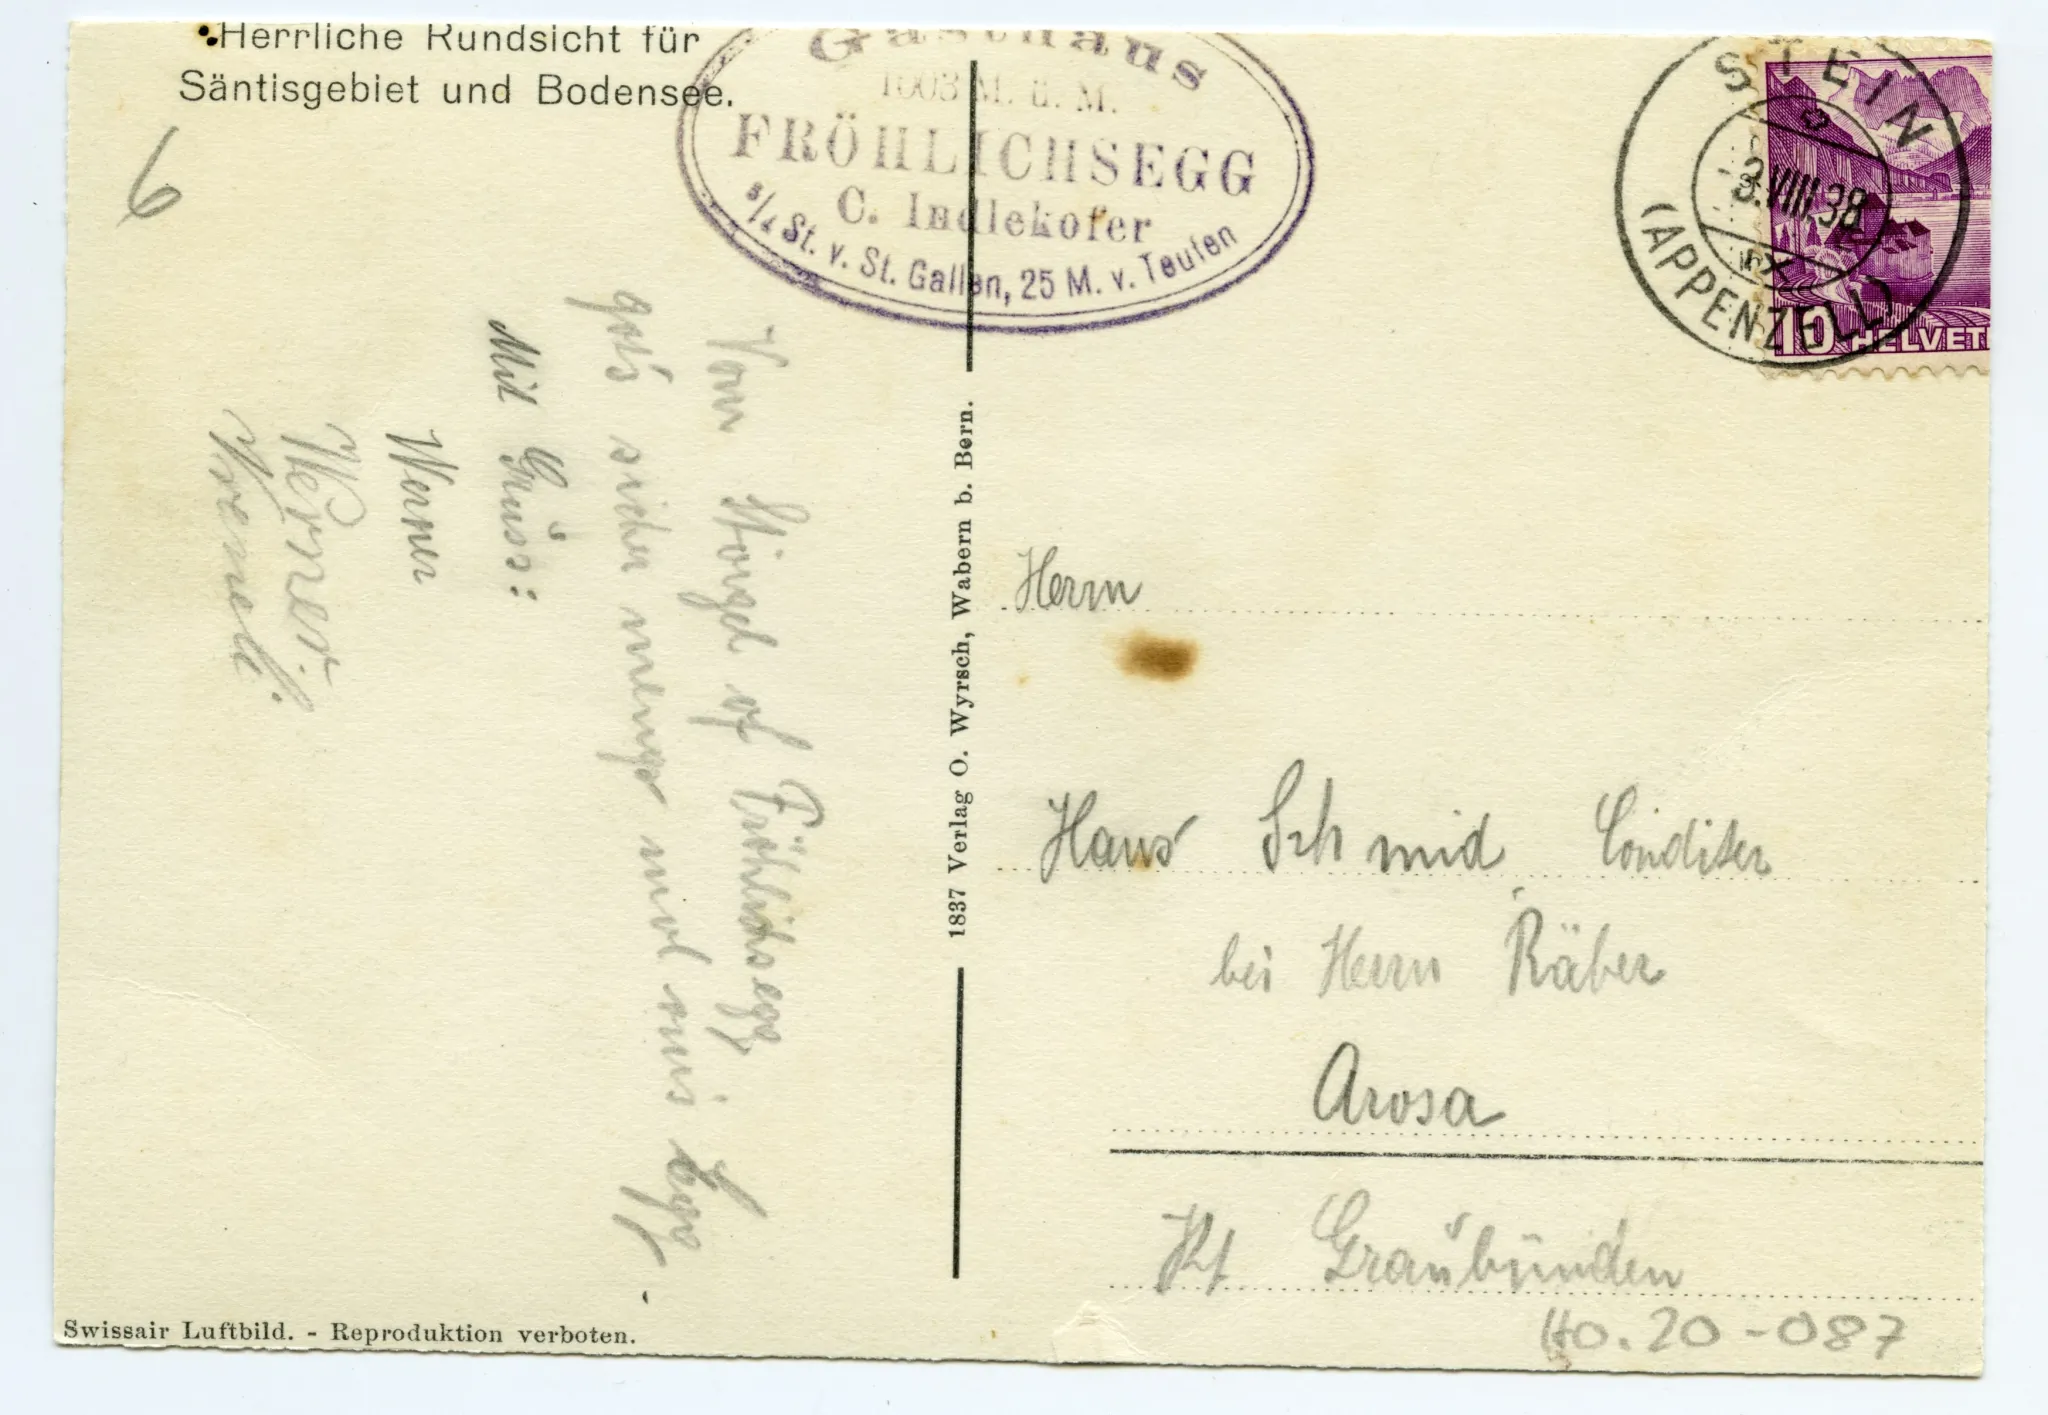 Herrliche Rundsicht für
Säntisgebiet und Bodensee.
6
Gasthaus
1003 M. ü. M.
FRÖHLICHSEGG
C. Indlekofer
5/4 St. v. St. Gallen, 25 M. v. Teufen
STEIN
(APPENZELL)
3.VIII.38
10 HELVETI
Vom Hügel of Fröhlichsegg
got's sicher menge mol mis
Mit Grüss:
Werner
Werner
1837 Verlag O. Wyrsch, Wabern b. Bern.
Herrn
Hans Schmid Conditer
bei Herrn Räber
Arosa
Kt Graubünden
Ho.20-087
Swissair Luftbild. - Reproduktion verboten.